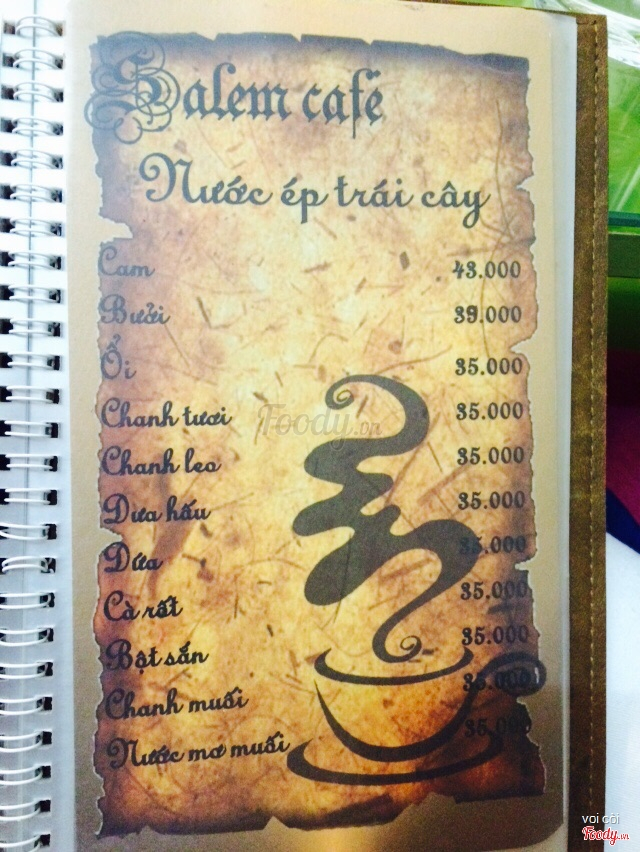 Salem café
Nước ép trái cây
Cam 43.000
Bưởi 39.000
Ổi 35.000
Chanh tươi 35.000
Foody.vn
Chanh leo 35.000
Dưa hấu 35.000
Dứa 35.000
Cà rốt 35.000
Bột sắn 35.000
Chanh muối 35.000
Nước mơ muối 35.000
voi còi
Foody.vn